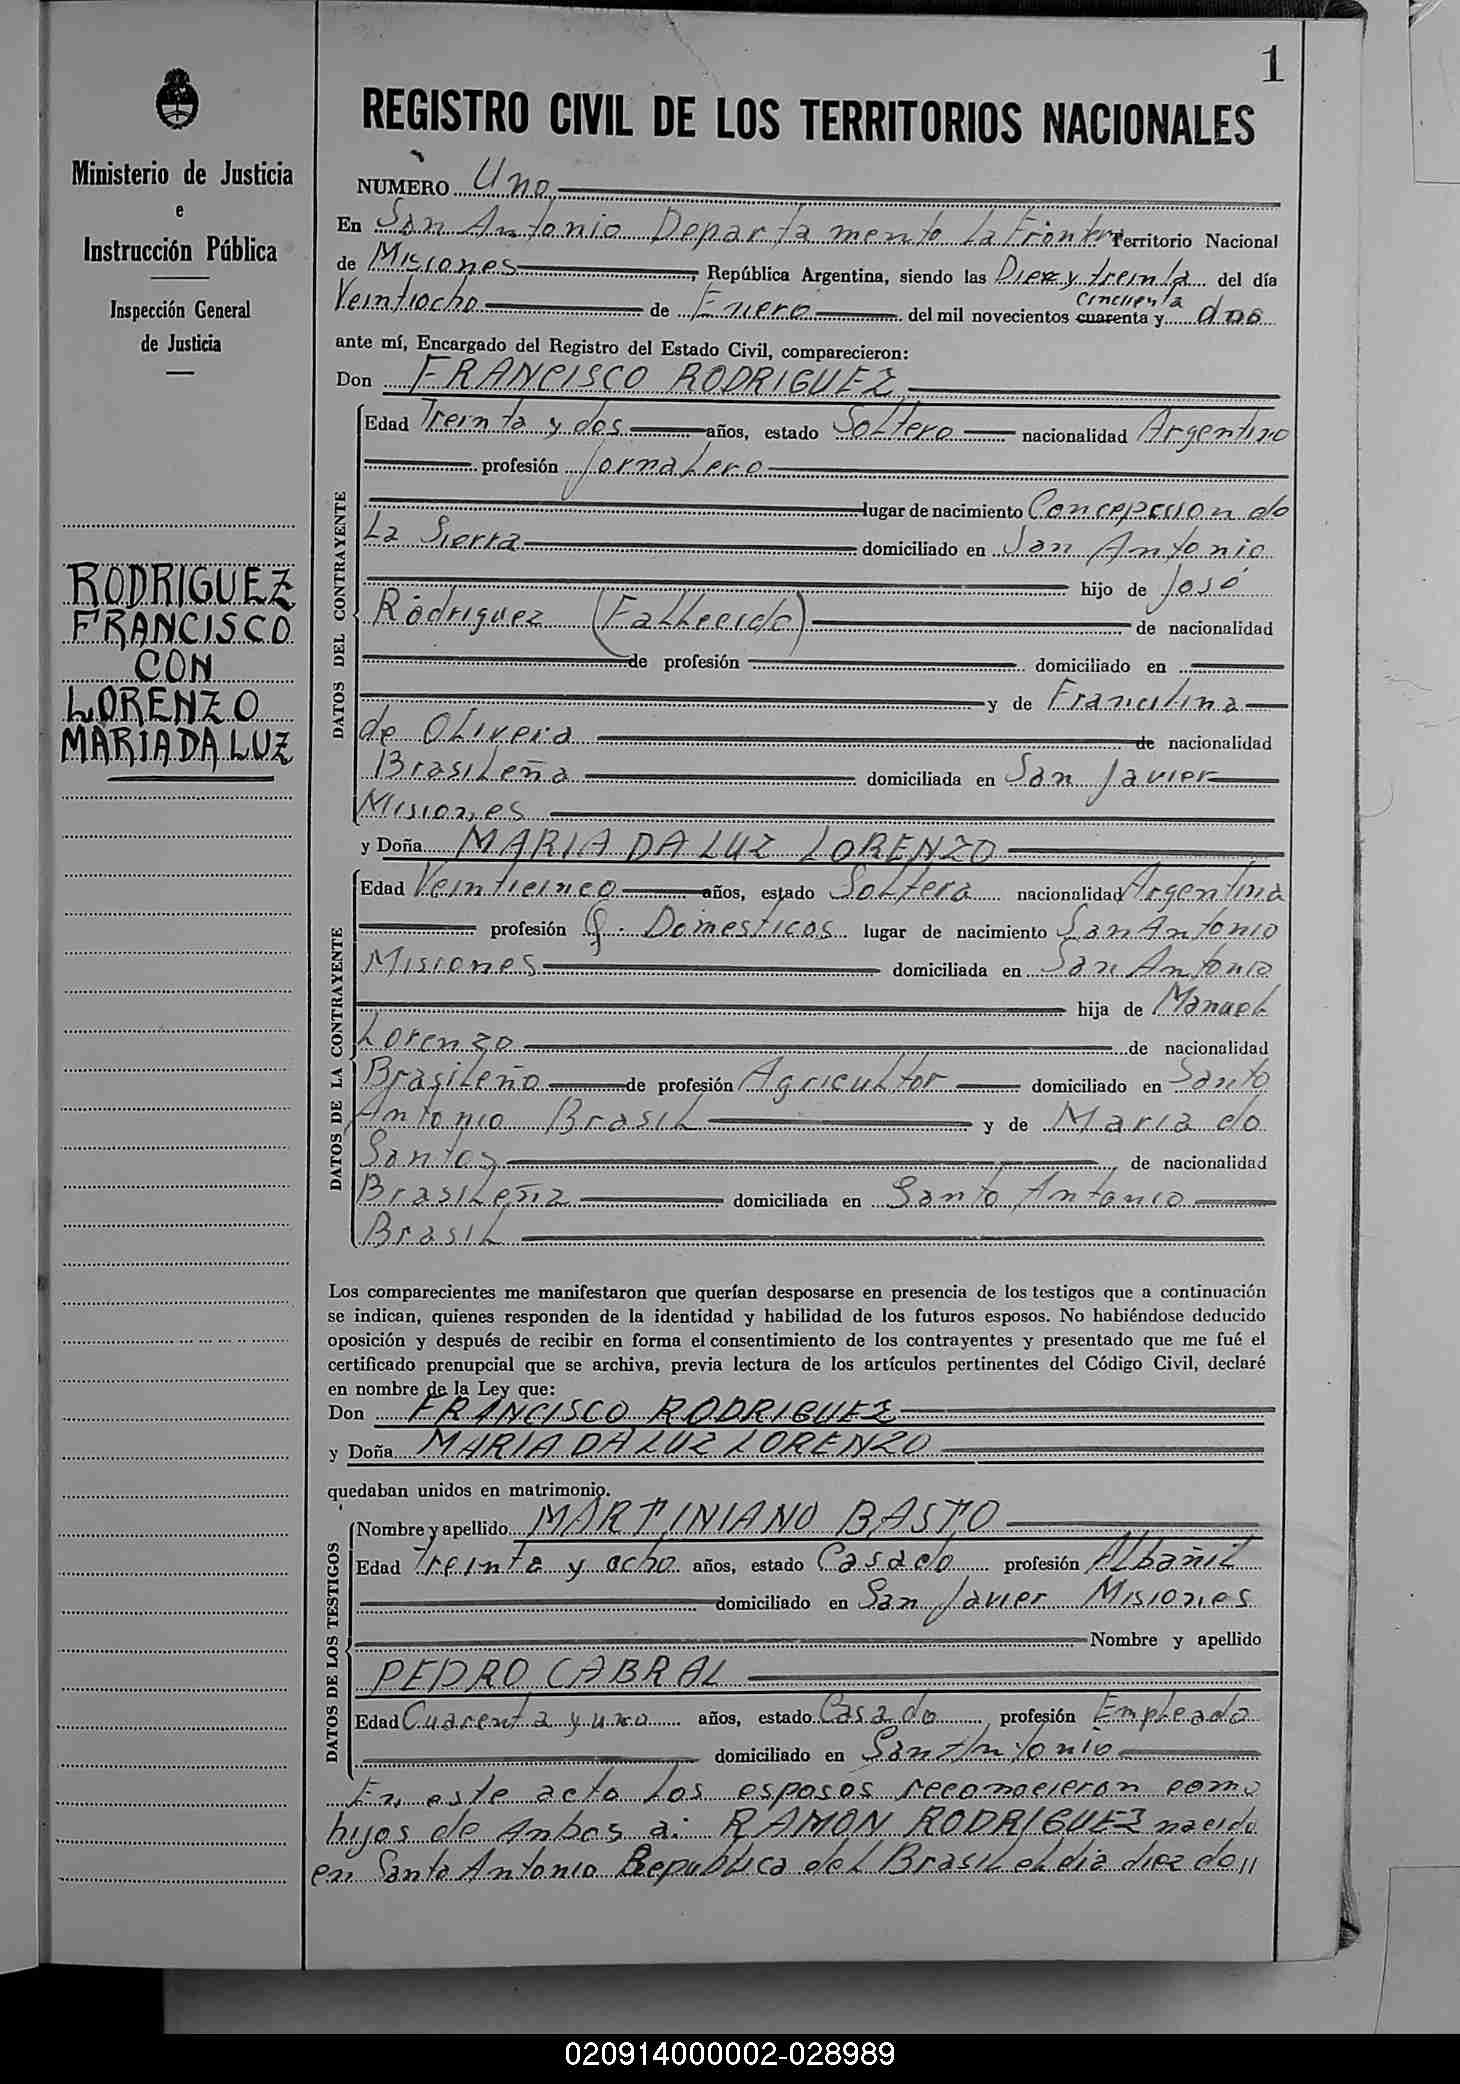 1
Ministerio de Justicia
e
Instrucción Pública
Inspección General
de Justicia
RODRIGUEZ
FRANCISCO
CON
LORENZO
MARIA DA LUZ
REGISTRO CIVIL DE LOS TERRITORIOS NACIONALES
NUMERO Uno
En San Antonio Departamento La Frontera Territorio Nacional
de Misiones, República Argentina, siendo las Diez y treinta del día
Veintiocho de Enero del mil novecientos cuarenta y cincuenta dos
ante mí, Encargado del Registro del Estado Civil, comparecieron:
Don FRANCISCO RODRIGUEZ
DATOS DEL CONTRAYENTE
Edad Treinta y dos años, estado Soltero nacionalidad Argentino
profesión Jornalero
lugar de nacimiento Concepcion de
La Sierra domiciliado en San Antonio
hijo de José
Rodriguez (Fallecido) de nacionalidad
de profesión domiciliado en
y de Francilina
de Olivera de nacionalidad
Brasileña domiciliada en San Javier
Misiones
y Doña MARIA DA LUZ LORENZO
DATOS DE LA CONTRAYENTE
Edad Veinticinco años, estado Soltera nacionalidad Argentina
profesión Q. Domesticos lugar de nacimiento San Antonio
Misiones domiciliada en San Antonio
hija de Manuel
Lorenzo de nacionalidad
Brasileño de profesión Agricultor domiciliado en Santo
Antonio Brasil y de Maria do
Santos de nacionalidad
Brasileña domiciliada en Santo Antonio
Brasil
Los comparecientes me manifestaron que querían desposarse en presencia de los testigos que a continuación
se indican, quienes responden de la identidad y habilidad de los futuros esposos. No habiéndose deducido
oposición y después de recibir en forma el consentimiento de los contrayentes y presentado que me fué el
certificado prenupcial que se archiva, previa lectura de los artículos pertinentes del Código Civil, declaré
en nombre de la Ley que:
Don FRANCISCO RODRIGUEZ
y Doña MARIA DA LUZ LORENZO
quedaban unidos en matrimonio.
DATOS DE LOS TESTIGOS
Nombre y apellido MARTINIANO BASTO
Edad Treinta y ocho años, estado Casado profesión Albañil
domiciliado en San Javier Misiones
Nombre y apellido
PEDRO CABRAL
Edad Cuarenta y uno años, estado Casado profesión Empleado
domiciliado en San Antonio
En este acto los esposos reconocieron como
hijos de Anbos a: RAMON RODRIGUEZ nacido
en Santo Antonio Republica del Brasil el dia diez de //
020914000002-028989